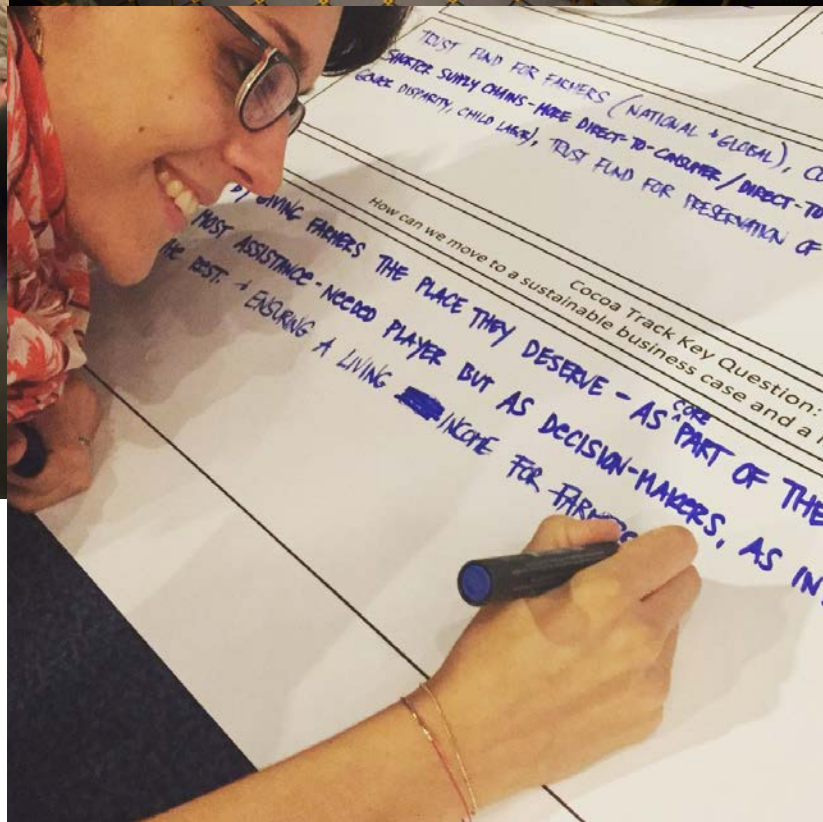 TRUST FUND FOR FARMERS (NATIONAL + GLOBAL), CO
SHORTER SUPPLY CHAINS - MORE DIRECT-TO-CONSUMER / DIRECT-TO
GENDER DISPARITY, CHILD LABOR), TRUST FUND FOR PRESERVATION OF
Cocoa Track Key Question:
How can we move to a sustainable business case and a l
BY GIVING FARMERS THE PLACE THEY DESERVE - AS CORE PART OF THE
MOST ASSISTANCE-NEEDED PLAYER BUT AS DECISION-MAKERS, AS IN
HE REST. + ENSURING A LIVING INCOME FOR FARMERS